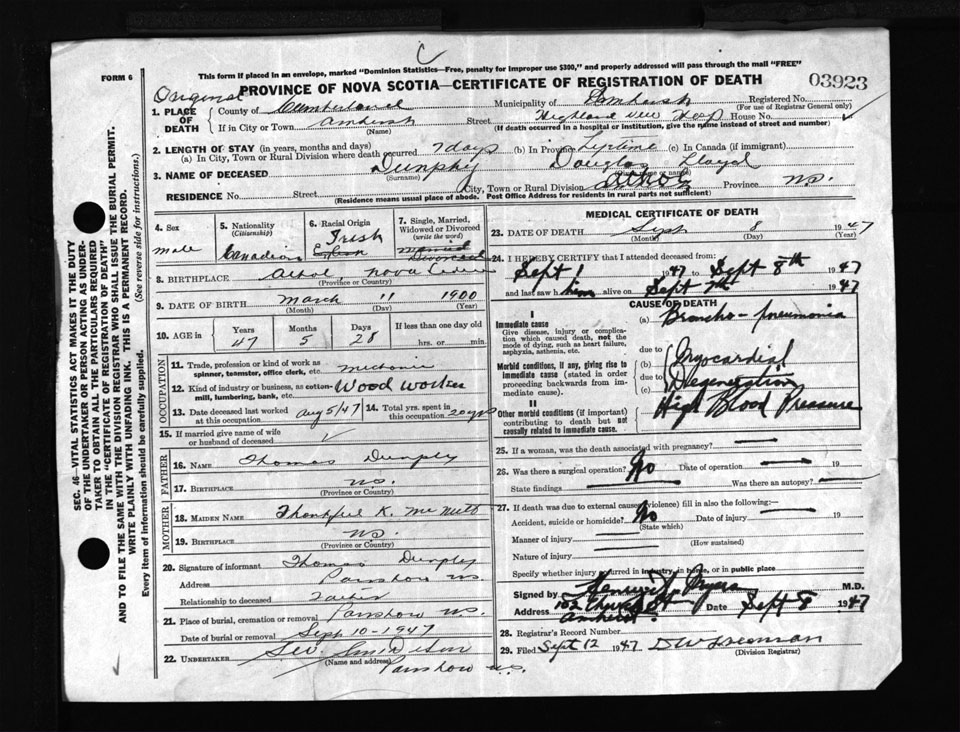 C
FORM 6
This form if placed in an envelope, marked "Dominion Statistics—Free, penalty for improper use $300," and properly addressed will pass through the mail "FREE"
Original
PROVINCE OF NOVA SCOTIA—CERTIFICATE OF REGISTRATION OF DEATH
03923
1. PLACE OF DEATH
County of Cumberland Municipality of Amherst Registered No.
(For use of Registrar General only)
If in City or Town Amherst Street Highland View Hosp House No.
(Name) (If death occurred in a hospital or institution, give the name instead of street and number)
2. LENGTH OF STAY (in years, months and days)
(a) In City, Town or Rural Division where death occurred 7 days (b) In Province Lifetime (c) In Canada (if immigrant)
3. NAME OF DECEASED Dunphy Douglas Lloyd
(Surname) (Given name or names)
RESIDENCE No. Street City, Town or Rural Division Athol Province N.S.
(Residence means usual place of abode. Post Office Address for residents in rural parts not sufficient)
4. Sex
male
5. Nationality
(Citizenship)
Canadian
6. Racial Origin
Irish
English
7. Single, Married, Widowed or Divorced
(write the word)
Married
Divorced
8. BIRTHPLACE Athol, Nova Scotia
(Province or Country)
9. DATE OF BIRTH March 11 1900
(Month) (Day) (Year)
10. AGE in Years Months Days If less than one day old
47 5 28 hrs. or min.
OCCUPATION
11. Trade, profession or kind of work as spinner, teamster, office clerk, etc. mechanic
12. Kind of industry or business, as cotton-mill, lumbering, bank, etc. Wood worker
13. Date deceased last worked at this occupation Aug 5/47 14. Total yrs. spent in this occupation 20 yrs
15. If married give name of wife or husband of deceased
FATHER
16. NAME Thomas Dunphy
17. BIRTHPLACE N.S.
(Province or Country)
MOTHER
18. MAIDEN NAME Thankful K.
19. BIRTHPLACE N.S.
(Province or Country)
20. Signature of informant Thomas Dunphy
Address Parrsboro N.S.
Relationship to deceased Father
21. Place of burial, cremation or removal Parrsboro N.S.
Date of burial or removal Sept. 10-1947
22. UNDERTAKER Smith & Son
(Name and address) Parrsboro N.S.
MEDICAL CERTIFICATE OF DEATH
23. DATE OF DEATH Sept 8 1947
(Month) (Day) (Year)
24. I HEREBY CERTIFY that I attended deceased from:
Sept 1 1947 to Sept 8th 1947
and last saw him alive on Sept 7th 1947
CAUSE OF DEATH
I
Immediate cause
Give disease, injury or complication which caused death, not the mode of dying, such as heart failure, asphyxia, asthenia, etc.
(a) Broncho-pneumonia
due to
Morbid conditions, if any, giving rise to immediate cause (stated in order proceeding backwards from immediate cause).
(b) Myocardial
due to Degeneration
(c)
II
Other morbid conditions (if important) contributing to death but not causally related to immediate cause.
High Blood Pressure
25. If a woman, was the death associated with pregnancy? —
26. Was there a surgical operation? No Date of operation — 19
State findings — Was there an autopsy? —
27. If death was due to external causes (violence) fill in also the following:—
Accident, suicide or homicide? No Date of injury — 19
(State which)
Manner of injury —
(How sustained)
Nature of injury —
Specify whether injury occurred in industry, in home, or in public place
Signed by M.D.
Address 102 Church St Date Sept 8 1947
Amherst.
28. Registrar's Record Number
29. Filed Sept 12 1947 D W
(Division Registrar)
SEC. 46—VITAL STATISTICS ACT MAKES IT THE DUTY
OF THE UNDERTAKER OR PERSON ACTING AS UNDERTAKER TO OBTAIN ALL THE PARTICULARS REQUIRED
IN THE "CERTIFICATE OF REGISTRATION OF DEATH"
AND TO FILE THE SAME WITH THE DIVISION REGISTRAR WHO SHALL ISSUE THE BURIAL PERMIT.
WRITE PLAINLY WITH UNFADING INK. THIS IS A PERMANENT RECORD.
Every item of information should be carefully supplied. (See reverse side for instructions.)